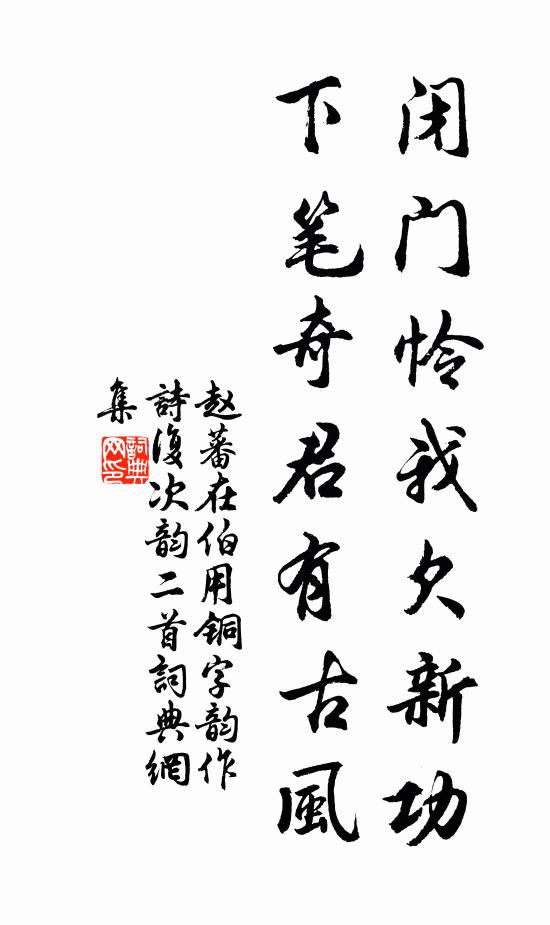 闭门怜我欠新功
下笔奇君有古風
赵蕃在伯用銅字韵作
詩復次韵二首詞典網
集
詞典网印